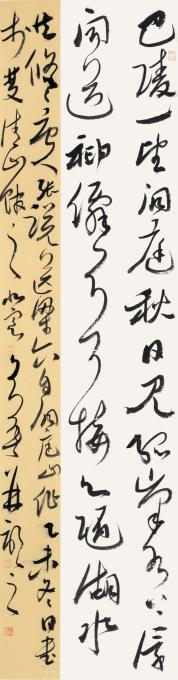 巴陵一望洞庭秋日見孤峰水上浮
聞道神仙不可接心隨湖水
共悠悠唐人張說送梁六自洞庭山作乙未冬日書